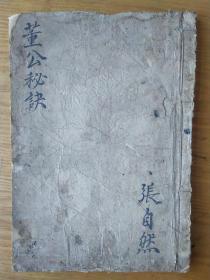 董公秘訣
張自然